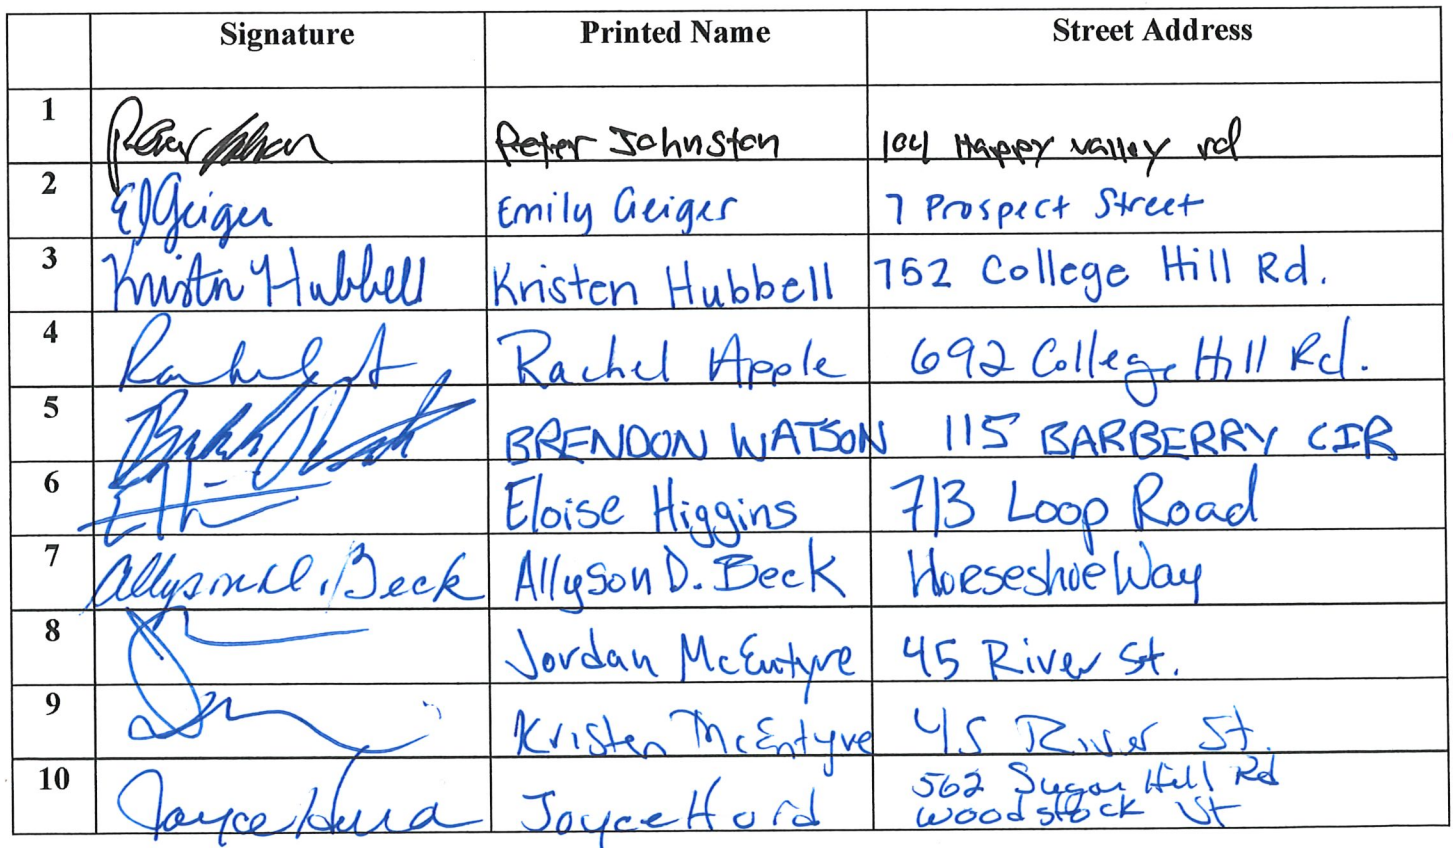 Signature Printed Name Street Address
1 Peter Johnston 104 Happy valley rd
2 EJGeiger Emily Geiger 7 Prospect Street
3 Kristen Hubbell Kristen Hubbell 752 College Hill Rd.
4 Rachel A Rachel Apple 692 College Hill Rd.
5 BRENDON WATSON 115 BARBERRY CIR
6 Eloise Higgins 713 Loop Road
7 Allyson D. Beck Allyson D. Beck Horseshoe Way
8 Jordan McEntyre 45 River St.
9 Kristen McEntyre 45 River St.
10 Joyce Hord Joyce Hord 562 Sugar Hill Rd
Woodstock Vt